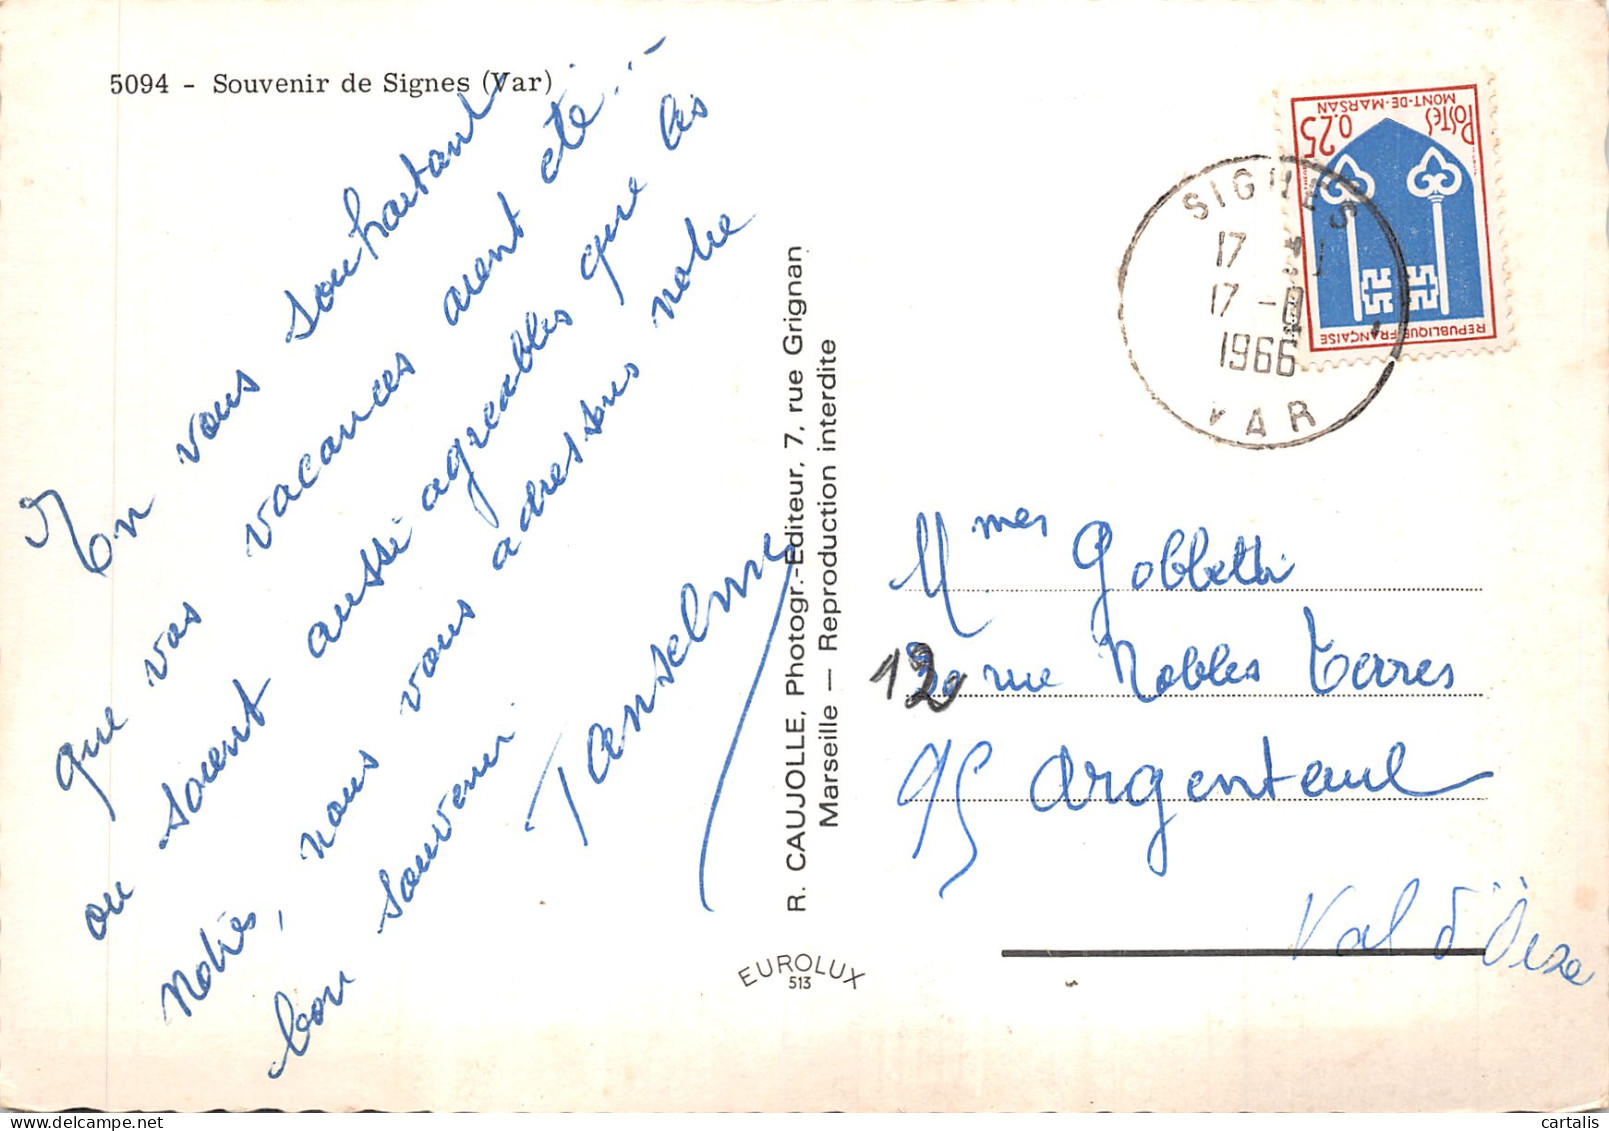 5094 - Souvenir de Signes (Var)
En vous souhaitant
que vos vacances aient été
ou soient aussi agréables que les
notres, nous vous adressons notre
bon souvenir
Tanselme
R. CAUJOLLE, Photogr.-Editeur, 7, rue Grignan
Marseille — Reproduction interdite
EUROLUX
513
POSTES
0.25
MONT-DE-MARSAN
REPUBLIQUE FRANÇAISE
SIGNES
17
17 -
1966
VAR
Mmes Gobbetti
12 rue Nobles Terres
95 Argenteuil
Val d'Oise
cartalis